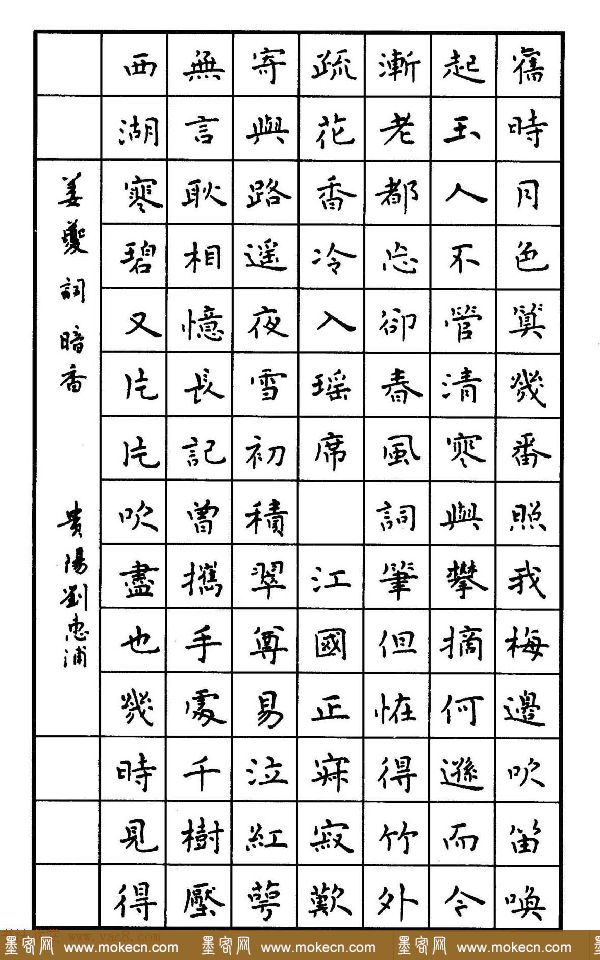 舊時月色算幾番照我梅邊吹笛喚
起玉人不管清寒與攀摘何遜而今
漸老都忘卻春風詞筆但恠得竹外
疏花香冷入瑶席 江國正寂寂歎
寄與路遥夜雪初積翠尊易泣紅萼
無言耿相憶長記曾攜手處千樹壓
西湖寒碧又片片吹盡也幾時見得
姜夔詞暗香 貴陽劉忠浦
墨客网 www.mokecn.com 墨客网 www.mokecn.com 墨客网 www.mokecn.com